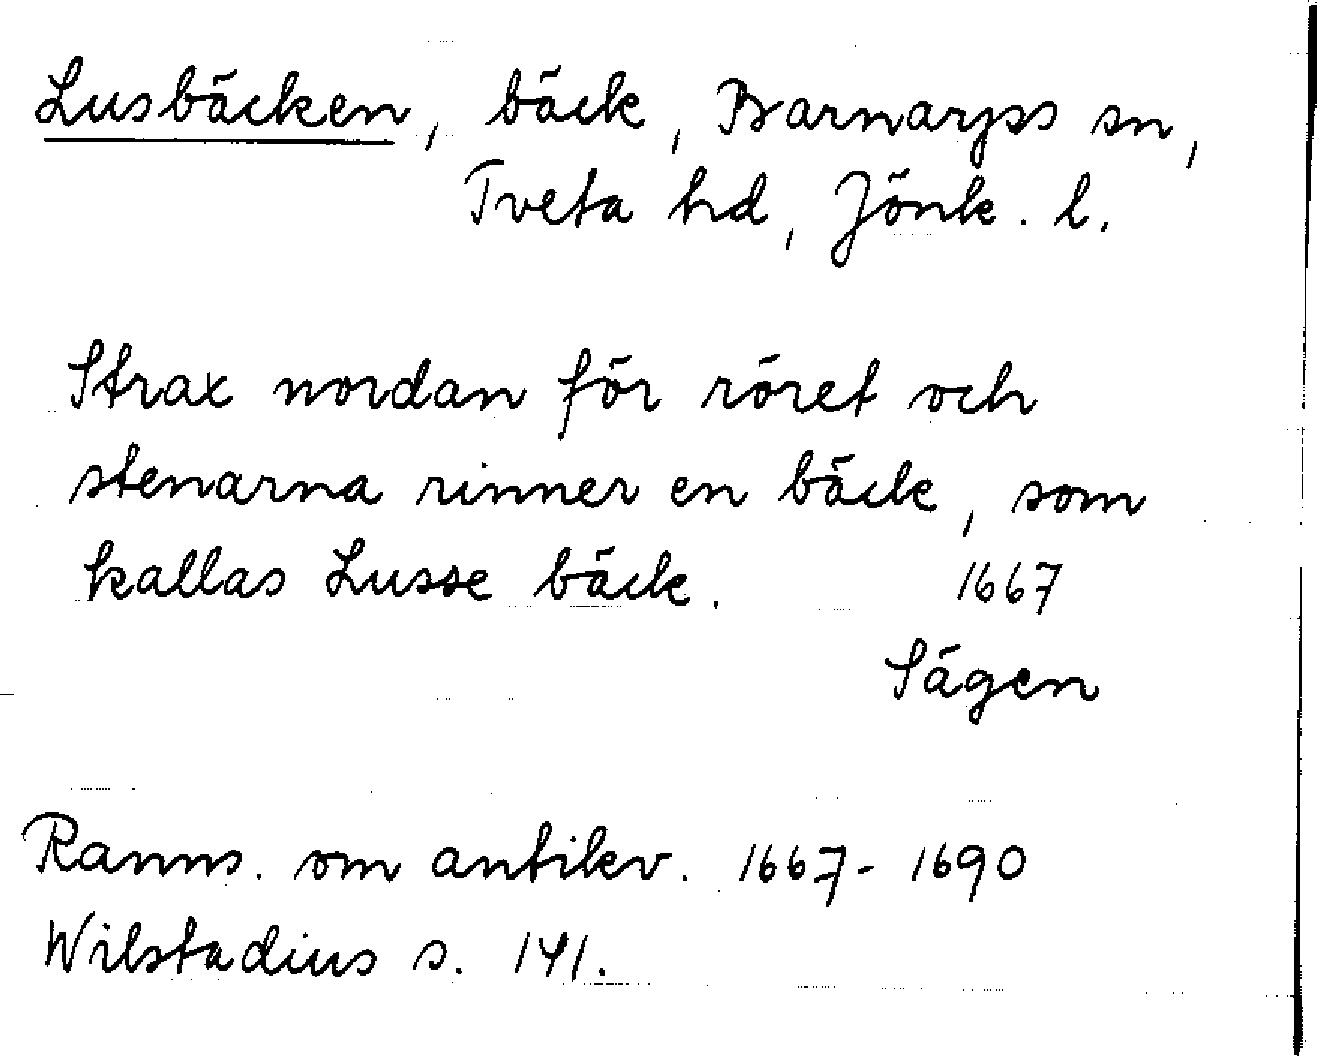 Lusbäcken, bäck, Barnarps sn,
Tveta hd, Jönk. l.
Strax nordan för röret och
stenarna rinner en bäck, som
kallas Lusse bäck. 1667
Sägen
Ranns. om antikv. 1667-1690
Wilstadius s. 141.